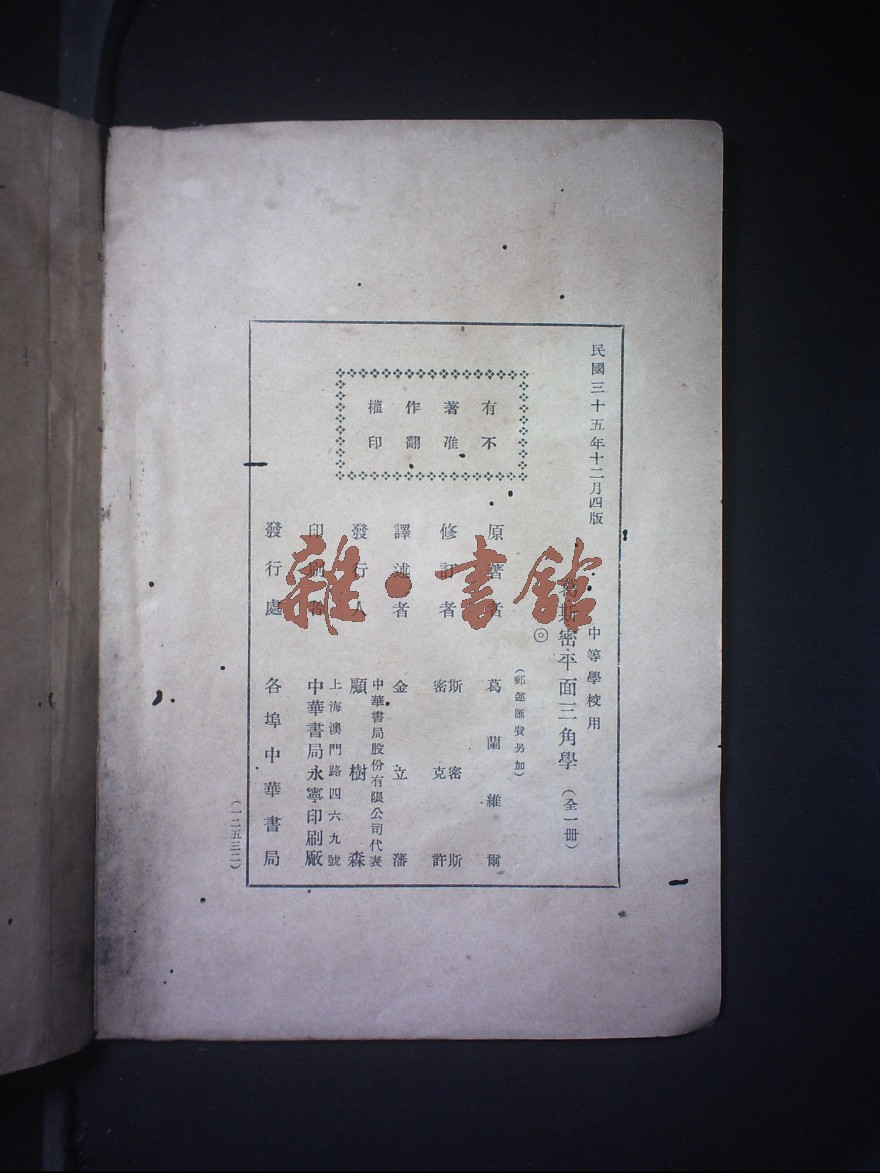 民國三十五年十二月四版
中等學校用
葛斯密平面三角學（全一冊）
◎
（郵運匯費另加）
有不
著准
作翻
權印
原著者 葛蘭維爾
修訂者 斯密斯
密克許
譯述者 金立藩
發行人 顧樹森
中華書局股份有限公司代表
印刷者 中華書局永寧印刷廠
上海澳門路四六九號
發行處 各埠中華書局
（一二五三二）
雜·書館